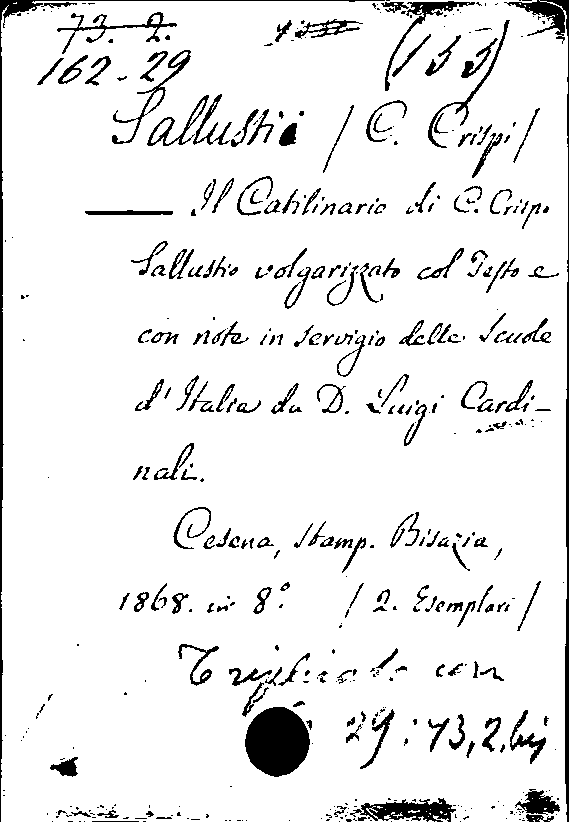 73. 2.
162-29
(153)
Sallusti / C. Crispi /
Il Catilinario di C. Crispo
Sallustio volgarizzato col Testo e
con note in servigio delle Scuole
d'Italia da D. Luigi Cardi-
nali.
Cesena, stamp. Bisazia,
1868. in 8.° / 2. Esemplari /
Triplicato con
29: 73,2,bis